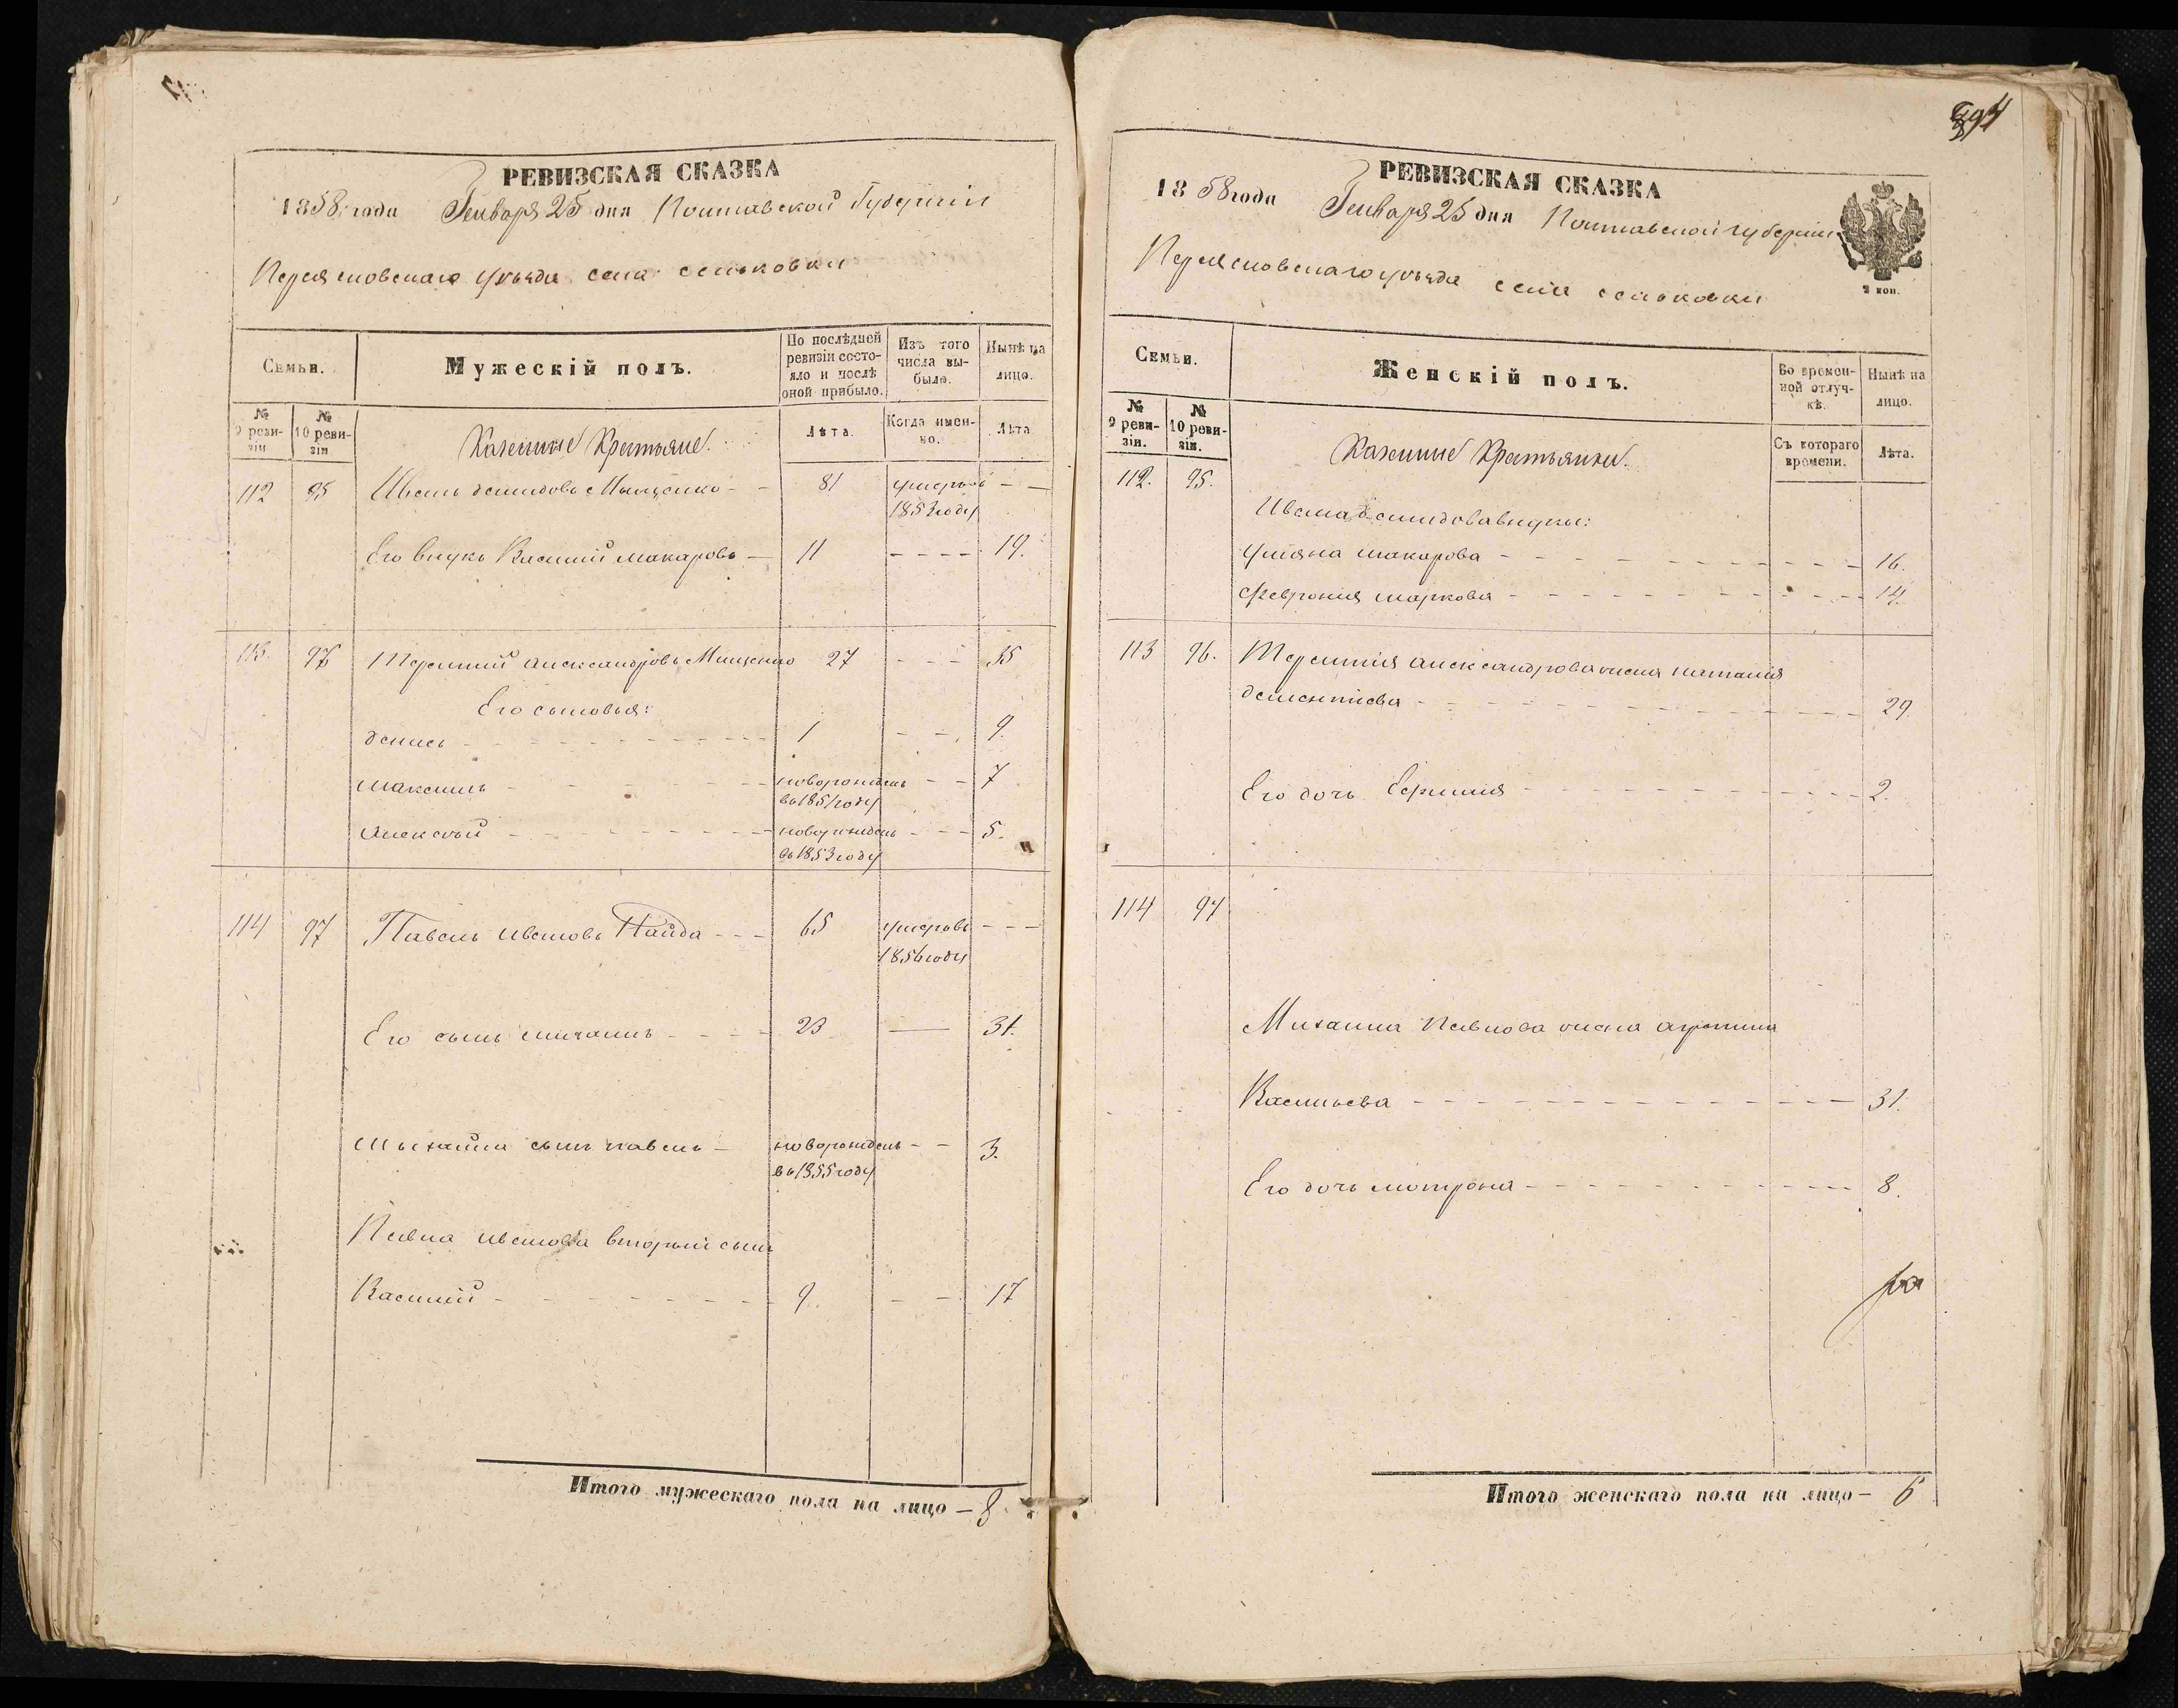 РЕВИЗСКАЯ СКАЗКА
1858 года Генваря 25 дня Полтавской Губернiи
Переясловскаго уѣзда села сеньковки
Семьи.
Мужескій полъ.
По послѣдней ревизіи состояло и послѣ оной прибыло.
Изъ того числа выбыло.
Нынѣ на лицо.
№ 9 ревизіи
№ 10 ревизіи
Казенные Крестьяне.
Лѣта.
Когда именно.
Лѣта
112 95 Иванъ демидовъ Мищенко - - 81 умеръ въ - -
1853 году
Его внукъ Василій макаровъ — 11 - - - - 19.
113. 96 Терентій александровъ Мищенко 27 - - - 35
Его сыновья:
денисъ - - - 1 - - 9.
максимъ - - - новорожденъ - - 7
въ 1851 году
алексѣй - - - новорожденъ - - - 5.
въ 1853 году
114 97 Павелъ ивановъ Найда - - - 65 умеръ въ - - -
1856 году
Его сынъ михаилъ - - - - 23 — 31.
Михаила сынъ павелъ - новорожденъ - - 3.
въ 1855 году
Павла иванова вторый сынъ
Василій - - - 9. - - 17
Итого мужескаго пола на лицо — 8.
394
РЕВИЗСКАЯ СКАЗКА
1858 года Генваря 25 дня Полтавской губерніи
Переясловскаго уѣзда села сеньковки
2 коп.
Семьи.
Женскій полъ.
Во временной отлучкѣ.
Нынѣ на лицо.
№ 9 ревизіи.
№ 10 ревизіи.
Казенные Крестьянки.
Съ котораго времени.
Лѣта.
112. 95.
Ивана демидова внуки:
ульяна макарова - - - 16.
феврония маркова - - - 14.
113 96. Терентія александрова жена наталія
дементіева - - - 29.
Его дочь Евфимія - - - 2.
114 97
Михаила Павлова жена агрипина
Васильева - - - 31.
Его дочь мотрона - - - 8.
Итого женскаго пола на лицо — 6